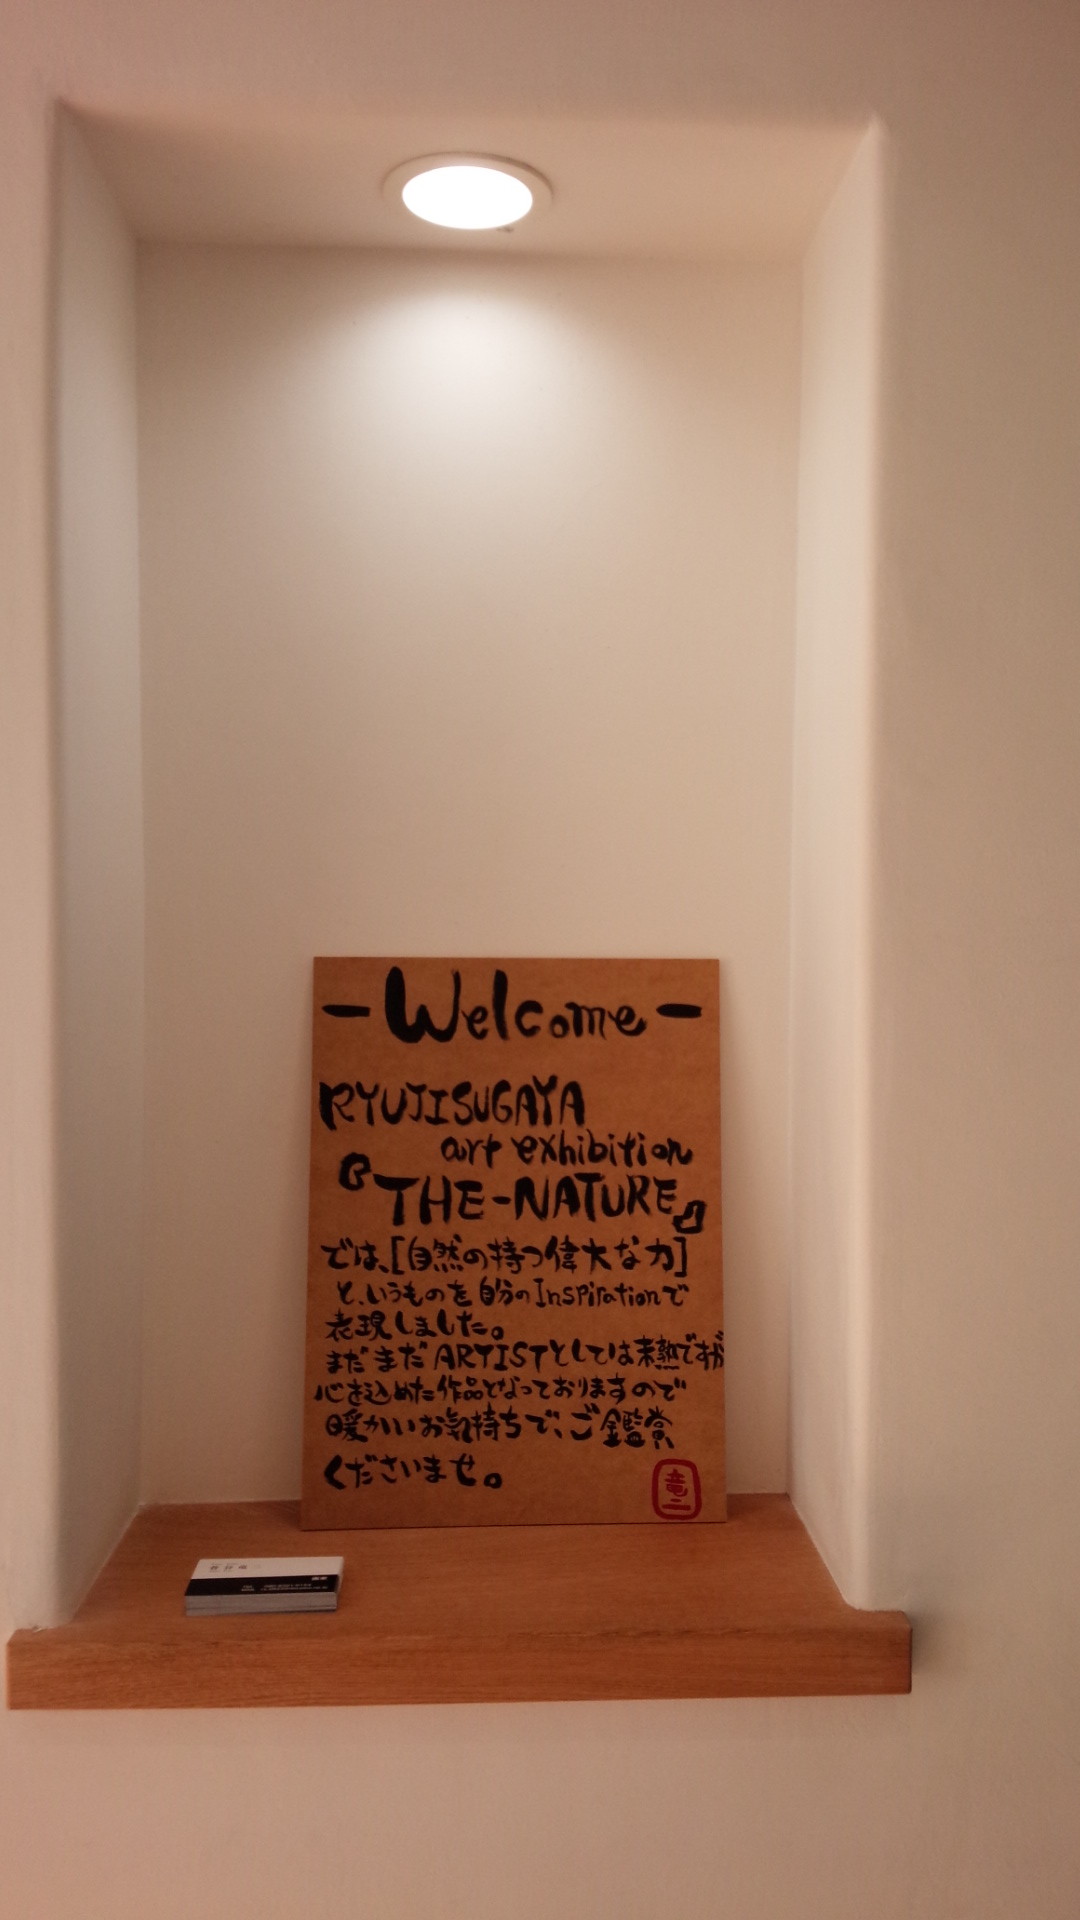 -Welcome-
RYUJISUGAYA
art exhibition
『THE-NATURE』
では、[自然の持つ偉大な力]
と、いうものを自分のInspirationで
表現しました。
まだまだARTISTとしては未熟ですが
心を込めた作品となっておりますので
暖かいお気持ちで、ご鑑賞
くださいませ。
竜二